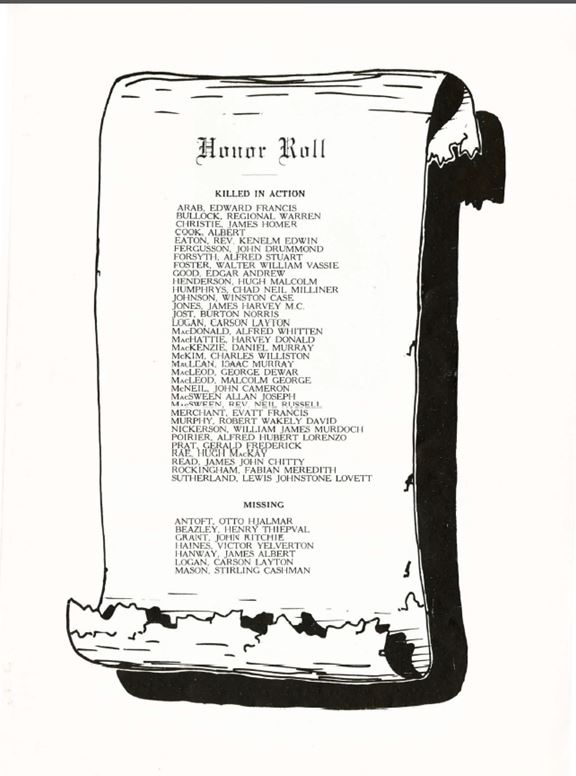 Honor Roll
KILLED IN ACTION
ARAB, EDWARD FRANCIS
BULLOCK, REGIONAL WARREN
CHRISTIE, JAMES HOMER
COOK, ALBERT
EATON, REV. KENELM EDWIN
FERGUSSON, JOHN DRUMMOND
FORSYTH, ALFRED STUART
FOSTER, WALTER WILLIAM VASSIE
GOOD, EDGAR ANDREW
HENDERSON, HUGH MALCOLM
HUMPHRYS, CHAD NEIL MILLINER
JOHNSON, WINSTON CASE
JONES, JAMES HARVEY M.C.
JOST, BURTON NORRIS
LOGAN, CARSON LAYTON
MacDONALD, ALFRED WHITTEN
MacHATTIE, HARVEY DONALD
MacKENZIE, DANIEL MURRAY
McKIM, CHARLES WILLISTON
MacLEAN, ISAAC MURRAY
MacLEOD, GEORGE DEWAR
MacLEOD, MALCOLM GEORGE
McNEIL, JOHN CAMERON
MacSWEEN ALLAN JOSEPH
MacSWEEN, REV. NEIL RUSSELL
MERCHANT, EVATT FRANCIS
MURPHY, ROBERT WAKELY DAVID
NICKERSON, WILLIAM JAMES MURDOCH
POIRIER, ALFRED HUBERT LORENZO
PRAT, GERALD FREDERICK
RAE, HUGH MacKAY
READ, JAMES JOHN CHITTY
ROCKINGHAM, FABIAN MEREDITH
SUTHERLAND, LEWIS JOHNSTONE LOVETT
MISSING
ANTOFT, OTTO HJALMAR
BEAZLEY, HENRY THIEPVAL
GRANT, JOHN RITCHIE
HAINES, VICTOR YELVERTON
HANWAY, JAMES ALBERT
LOGAN, CARSON LAYTON
MASON, STIRLING CASHMAN